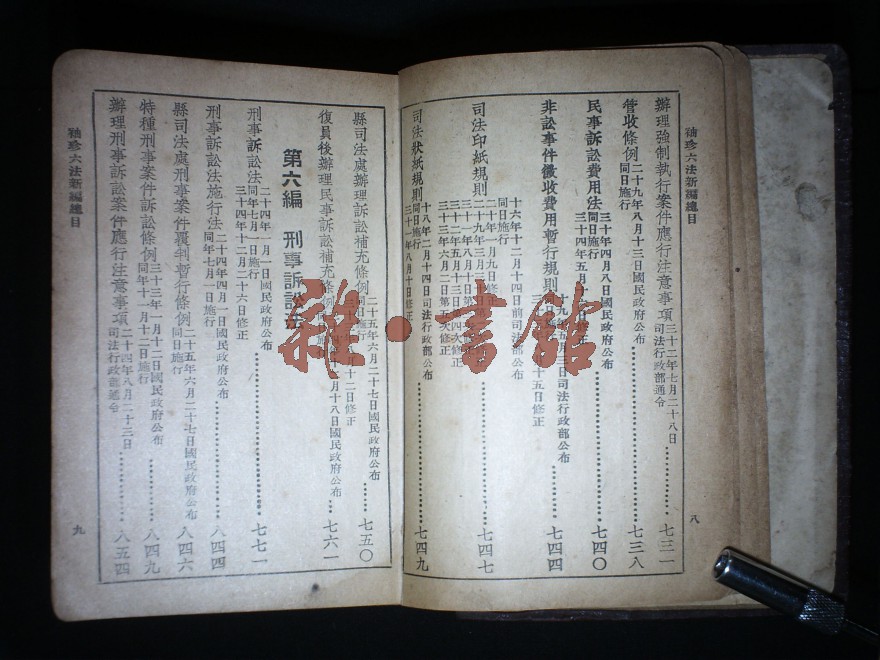 袖珍六法新編總目
八
辦理強制執行案件應行注意事項
三十二年七月二十八日
司法行政部通令
七三一
管收條例
二十九年八月十三日國民政府公布
同日施行
七三八
民事訴訟費用法
三十年四月八日國民政府公布
同日施行
七四〇
非訟事件徵收費用暫行規則
七四四
司法印紙規則
十六年十二月十四日前司法部公布
同日施行
七四七
司法狀紙規則
十八年二月十四日司法行政部公布
同日施行
七四九
縣司法處辦理訴訟補充條例
二十五年六月二十七日國民政府公布
七五〇
復員後辦理民事訴訟補充條例
七六一
第六編 刑事訴訟法
刑事訴訟法
二十四年一月一日國民政府公布
同年七月一日施行
三十四年十二月二十六日修正
七七一
刑事訴訟法施行法
二十四年四月一日國民政府公布
同年七月一日施行
八四四
縣司法處刑事案件覆判暫行條例
二十五年六月二十七日國民政府公布
同日施行
八四六
特種刑事案件訴訟條例
三十三年一月十二日國民政府公布
同年十一月十二日施行
八四九
辦理刑事訴訟案件應行注意事項
二十四年八月二十三日
司法行政部通令
八五四
袖珍六法新編總目
九
雜·書館